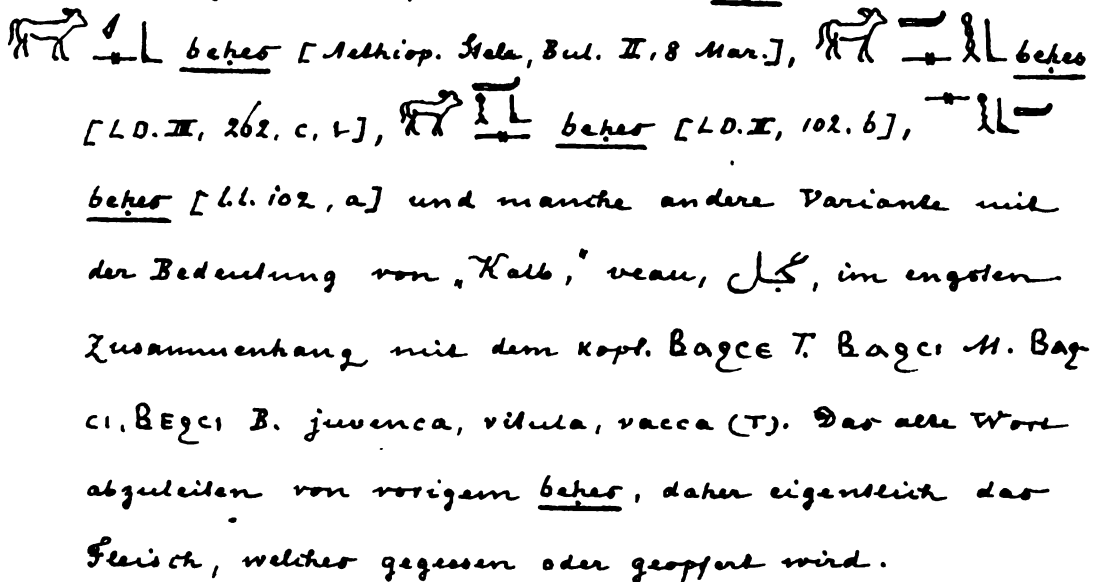 beḥes [Aethiop. Stele, Bul. II, 8 Mar.], beḥes
[LD. III, 262, c, 2], beḥes [LD. II, 102. b],
beḥes [l.l. 102, a] und manche andere Variante mit
der Bedeutung von „Kalb,“ veau, عجل, im engsten
Zusammenhang mit dem kopt. ⲃⲁϩⲥⲉ T. ⲃⲁϩⲥⲓ M. ⲃⲁϩ-
ⲥⲓ, ⲃⲉϩⲥⲓ B. juvenca, vitula, vacca (T). Das alte Wort
abzuleiten von vorigem beḥes, daher eigentlich das
Fleisch, welches gegessen oder geopfert wird.